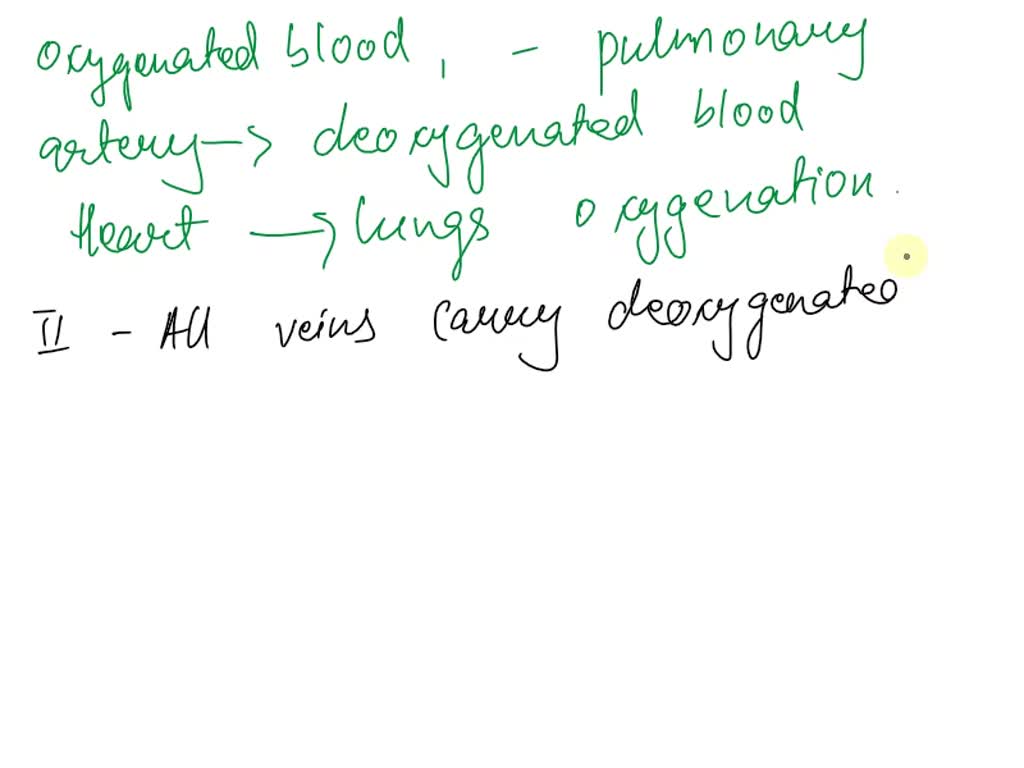 oxygenated blood, - pulmonary
artery → deoxygenated blood
Heart → lungs oxygenation.
II - All veins carry deoxygenated